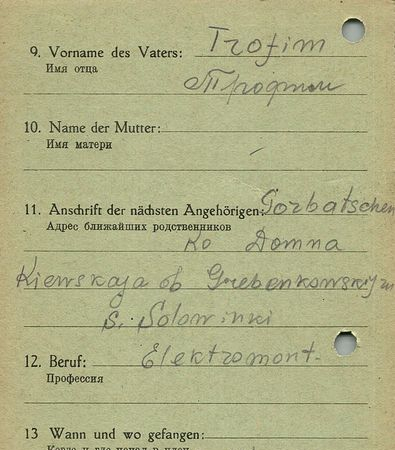 9. Vorname des Vaters: Trofim
Имя отца
Трофим
10. Name der Mutter:
Имя матери
11. Anschrift der nächsten Angehörigen: Gorbatschen
Адрес ближайших родственников
ko Domna
Kiewskaja ob Grebenkowskij
S. Solowinki
12. Beruf: Elektromont.
Профессия
13 Wann und wo gefangen:
Когда и где попал в плен